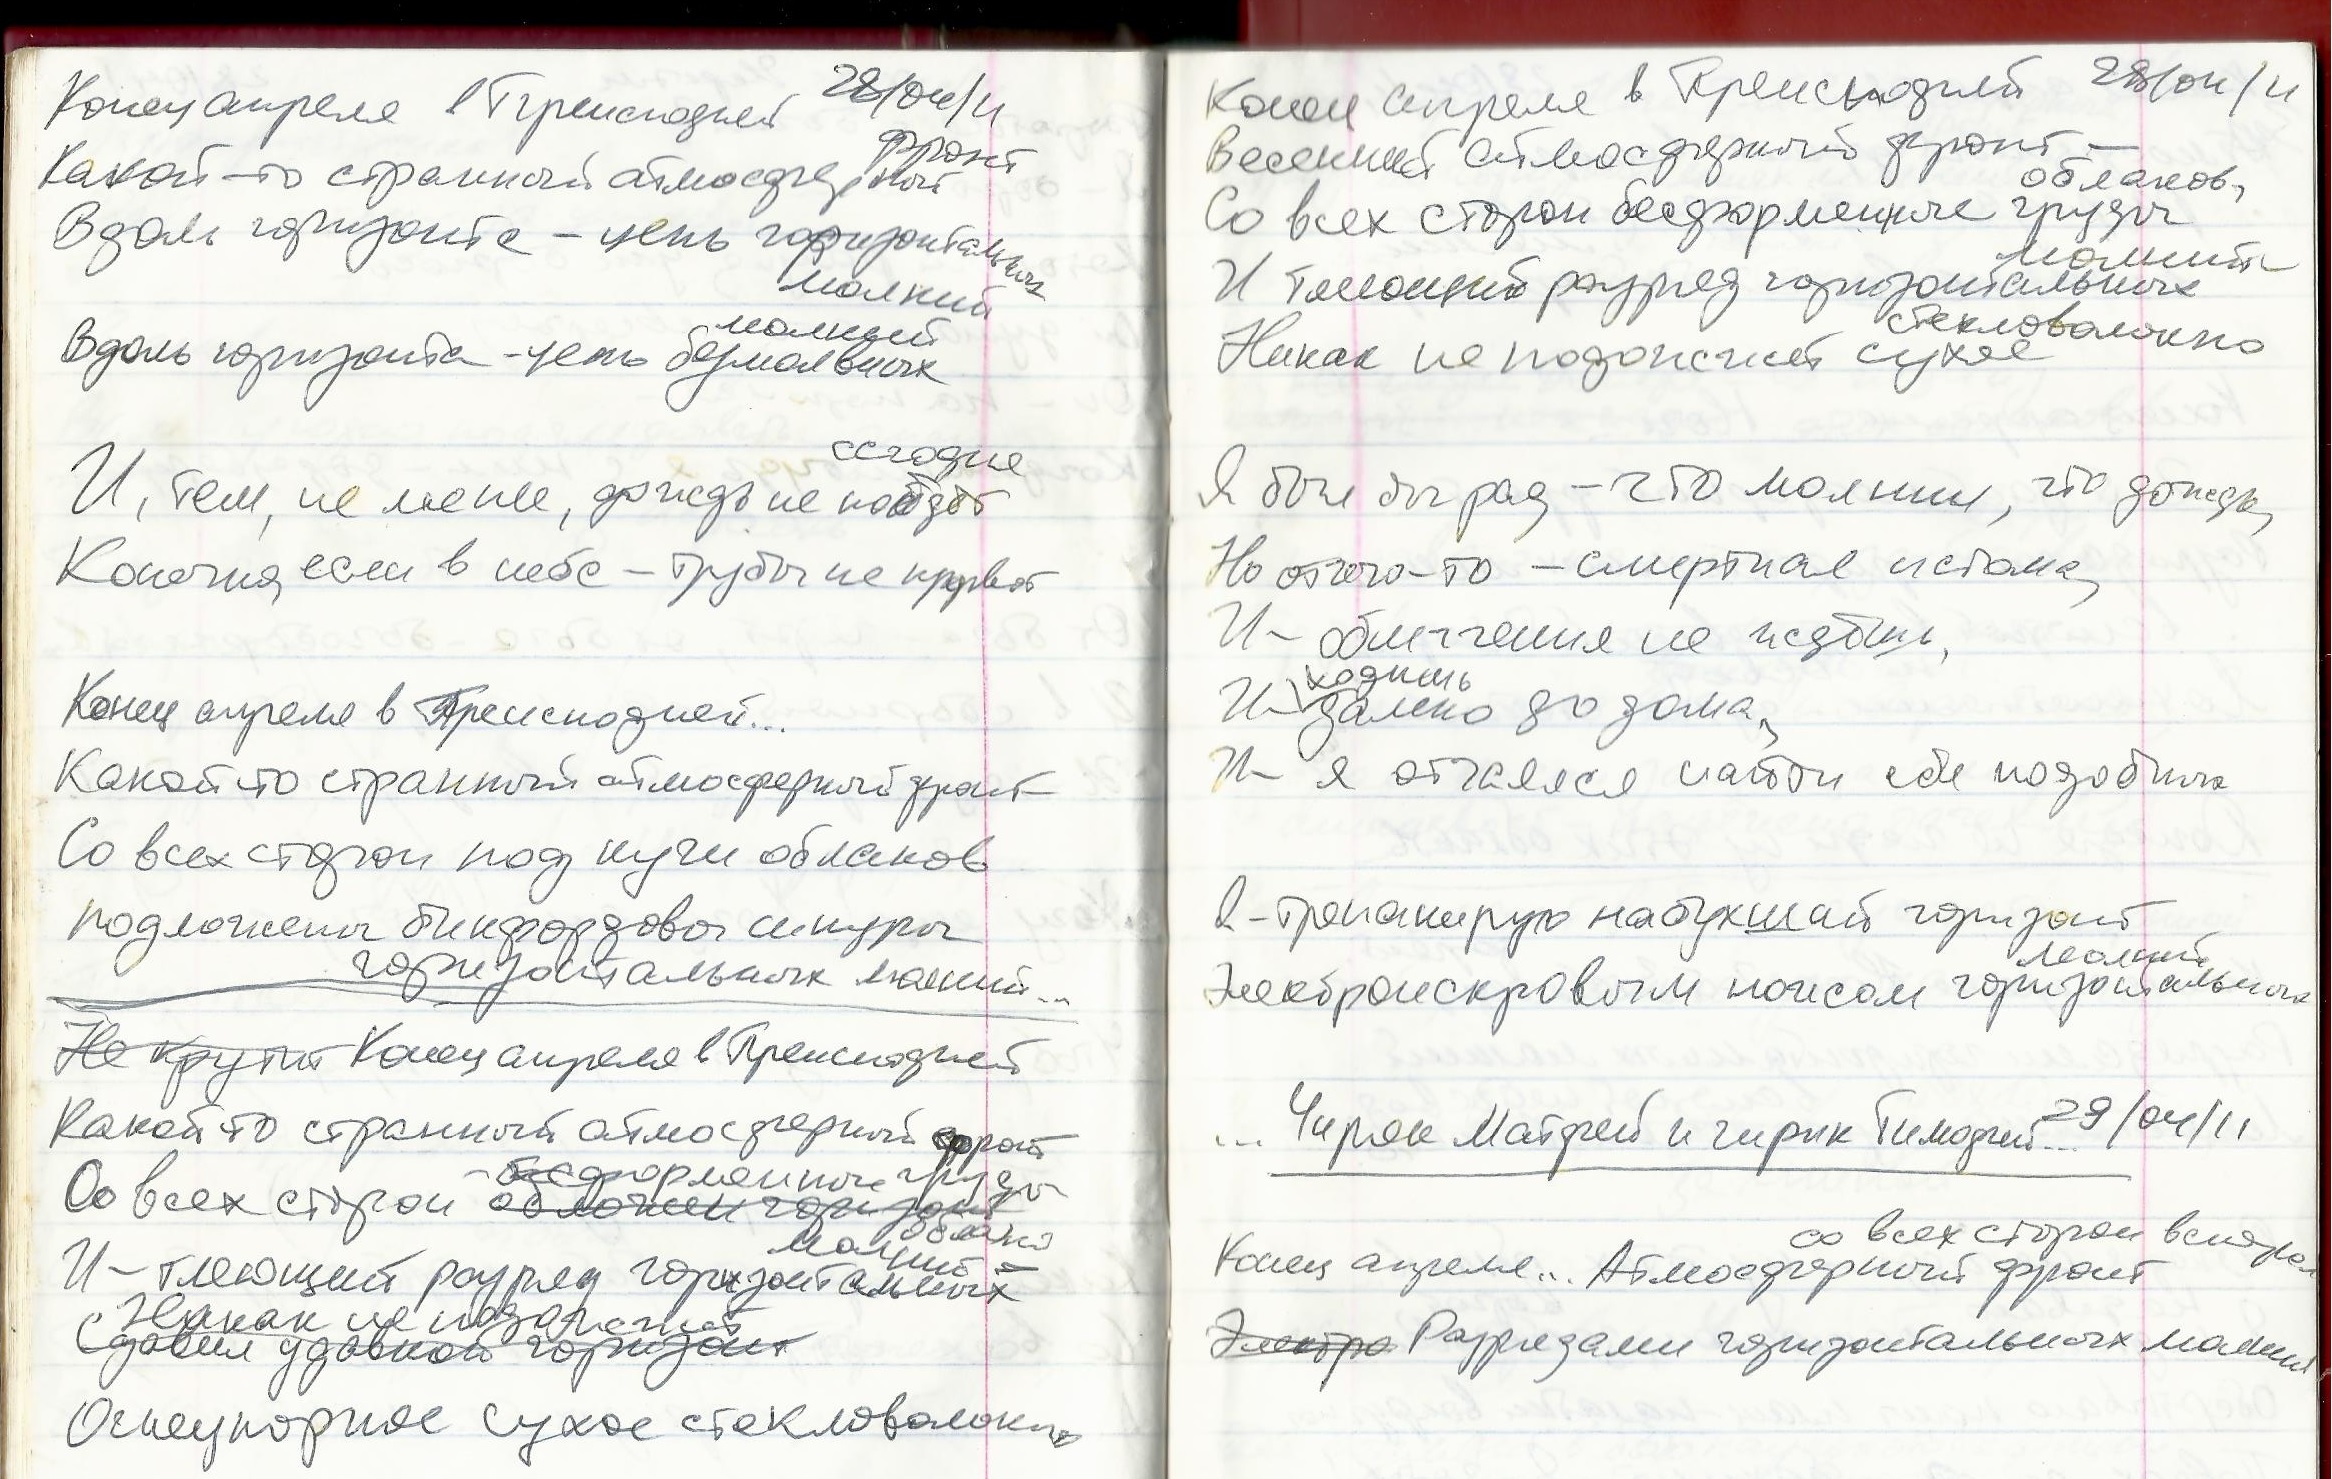 Конец апреля в Преисподней 28/04/11
Какой-то странный атмосферный фронт
Вдоль горизонта – цепь горизонтальных молний
Вдоль горизонта – цепь безмолвных молний
И, тем, не менее, дождь не пойдёт сегодня
Конечно, если в небе – трубы не прорвёт
Конец апреля в Преисподней...
Какой то странный атмосферный фронт
Со всех сторон под кучи облаков
подложены бикфордовы шнуры
горизонтальных молний...
Не крутит Конец апреля в Преисподней
Какой то странный атмосферный фронт
Со всех сторон обложен горизонт – бесформенные груды
облако
И – тлеющий разряд горизонтальных молний –
Никак не подожжёт
Сдавил удавкой горизонт
Огнеупорное сухое стекловолокно
Конец апреля в Преисподней 28/04/11
Весенний атмосферный фронт –
Со всех сторон бесформенные груды облаков,
И тлеющий разряд горизонтальных молний
Никак не подожжет сухое стекловолокно
Я был бы рад – что молнии, что дождь,
Но отчего-то – смертная истома,
И – облегчения не ждёшь,
И – ходишь далеко до дома,
И – я отчаялся найти себе подобных
Я – трепанирую набухший горизонт
Электроискровым ножом горизонтальных молний
... Чиряк Матфей и чирик Тимофей... 29/04/11
Конец апреля... Атмосферный фронт со всех сторон вспорол
Электро Разрядами горизонтальных молний